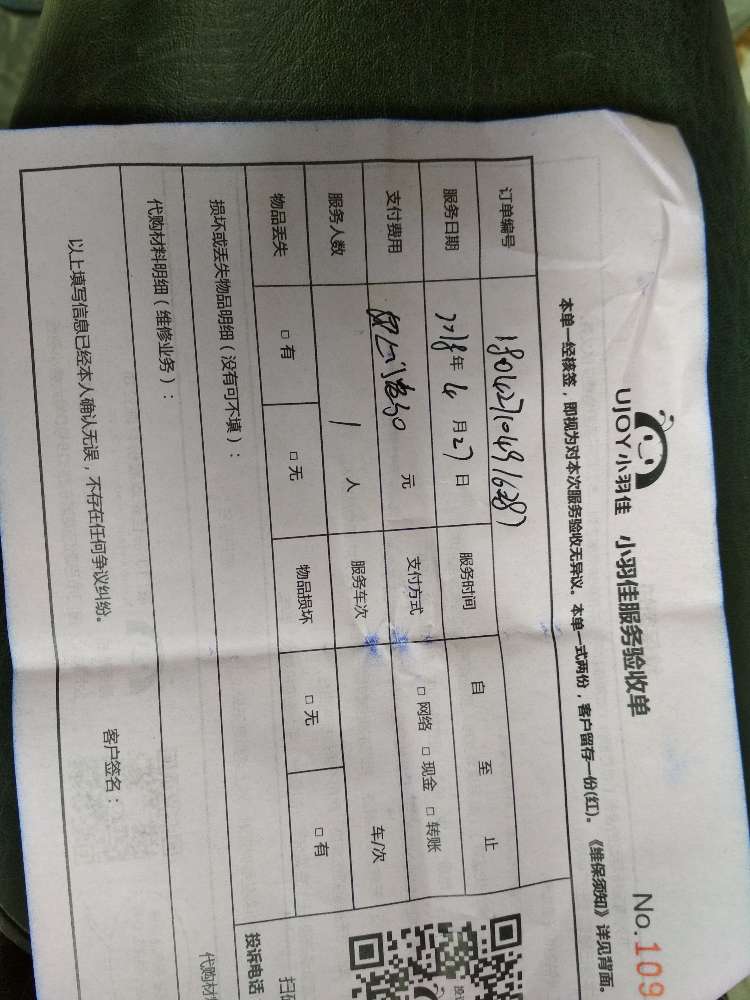 UJOY小羽佳 小羽佳服务验收单 No.109
本单一经核签，即视为对本次服务验收无异议。本单一式两份，客户留存一份(红)。《维保须知》详见背面。
订单编号
服务日期 2018年4月27日 服务时间 自 至 止
支付费用 元 支付方式 □ 网络 □ 现金 □ 转账
服务人数 1 人 服务车次 车/次
物品丢失 □ 有 □ 无 物品损坏 □ 无 □ 有
损坏或丢失物品明细（没有可不填）：
代购材料明细（维修业务）：
以上填写信息已经本人确认无误，不存在任何争议纠纷。 客户签名：
投诉电话